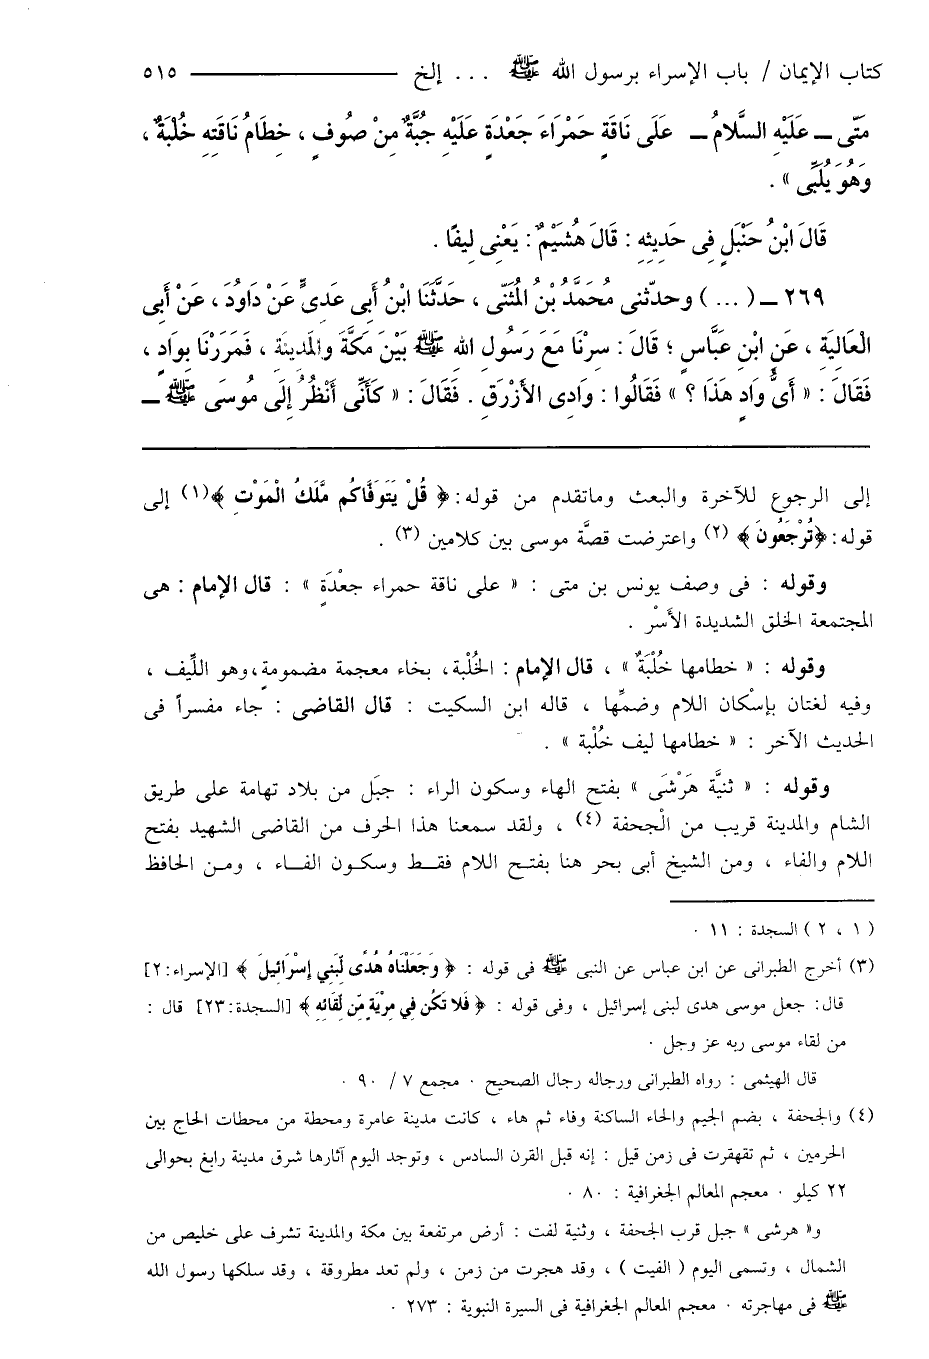 كتاب الإيمان / باب الإسراء برسول الله ﷺ ... إلخ ــــــــــــــــ ٥١٥
مَتَّى ــ عَلَيْهِ السَّلَامُ ــ عَلَى نَاقَةٍ حَمْرَاءَ جَعْدَةٍ عَلَيْهِ جُبَّةٌ مِنْ صُوفٍ ، خِطَامُ نَاقَتِهِ خُلْبَةٌ ،
وَهُوَ يُلَبِّى » .
قَالَ ابْنُ حَنْبَلٍ فِى حَدِيثِهِ : قَالَ هُشَيْمٌ : يَعْنِى لِيفًا .
٢٦٩ ــ ( ... ) وحدّثنى مُحَمَّدُ بْنُ المُثَنَّى ، حَدَّثَنَا ابْنُ أَبِى عَدِىٍّ عَنْ دَاوُدَ ، عَنْ أَبِى
الْعَالِيَةِ ، عَنِ ابْنِ عَبَّاسٍ ؛ قَالَ : سِرْنَا مَعَ رَسُولِ الله ﷺ بَيْنَ مَكَّةَ والمَدِينَةِ ، فَمَرَرْنَا بِوَادٍ ،
فَقَالَ : « أَىُّ وَادٍ هَذَا ؟ » فَقَالُوا : وَادِى الأَزْرَقِ . فَقَالَ : « كَأَنِّى أَنْظُرُ إِلَى مُوسَى ﷺ ــ
إلى الرجوع للآخرة والبعث وماتقدم من قوله: ﴿ قُلْ يَتَوَفَّاكُم مَّلَكُ الْمَوْتِ ﴾(١) إلى
قوله: ﴿تُرْجَعُونَ ﴾ (٢) واعترضت قصَّة موسى بين كلامين (٣) .
وقوله : فى وصف يونس بن متى : « على ناقة حمراء جعْدَةٍ » : قال الإمام : هى
المجتمعة الخلق الشديدة الأسْر .
وقوله : « خطامها خُلْبَةٌ » ، قال الإمام : الخُلْبة، بخاء معجمة مضمومةٍ،وهو اللِّيف ،
وفيه لغتان بإسْكان اللام وضمِّها ، قاله ابن السكيت : قال القاضى : جاء مفسراً فى
الحديث الآخر : « خطامها ليف خُلْبة » .
وقوله : « ثنيَّة هَرْشَى » بفتح الهاء وسكون الراء : جبَل من بلاد تهامة على طريق
الشام والمدينة قريب من الْجحفة (٤) ، ولقد سمعنا هذا الحرف من القاضى الشهيد بفتح
اللام والفاء ، ومن الشيخ أبى بحر هنا بفتح اللام فقط وسكون الفاء ، ومن الحافظ
( ١ ، ٢ ) السجدة : ١١ .
(٣) أخرج الطبرانى عن ابن عباس عن النبى ﷺ فى قوله : ﴿ وَجَعَلْنَاهُ هُدًى لِّبَنِي إِسْرَائِيلَ ﴾ [الإسراء:٢]
قال: جعل موسى هدى لبنى إسرائيل ، وفى قوله : ﴿ فَلا تَكُن فِي مِرْيَةٍ مِّن لِّقَائِهِ ﴾ [السجدة:٢٣] قال :
من لقاء موسى ربه عز وجل .
قال الهيثمى : رواه الطبرانى ورجاله رجال الصحيح . مجمع ٧ / ٩٠ .
(٤) والجحفة ، بضم الجيم والحاء الساكنة وفاء ثم هاء ، كانت مدينة عامرة ومحطة من محطات الحاج بين
الحرمين ، ثم تقهقرت فى زمن قيل : إنه قبل القرن السادس ، وتوجد اليوم آثارها شرق مدينة رابغ بحوالى
٢٢ كيلو . معجم المعالم الجغرافية : ٨٠ .
و« هرشى » جبل قرب الجحفة ، وثنية لفت : أرض مرتفعة بين مكة والمدينة تشرف على خليص من
الشمال ، وتسمى اليوم ( الفيت ) ، وقد هجرت من زمن ، ولم تعد مطروقة ، وقد سلكها رسول الله
ﷺ فى مهاجرته . معجم المعالم الجغرافية فى السيرة النبوية : ٢٧٣ .